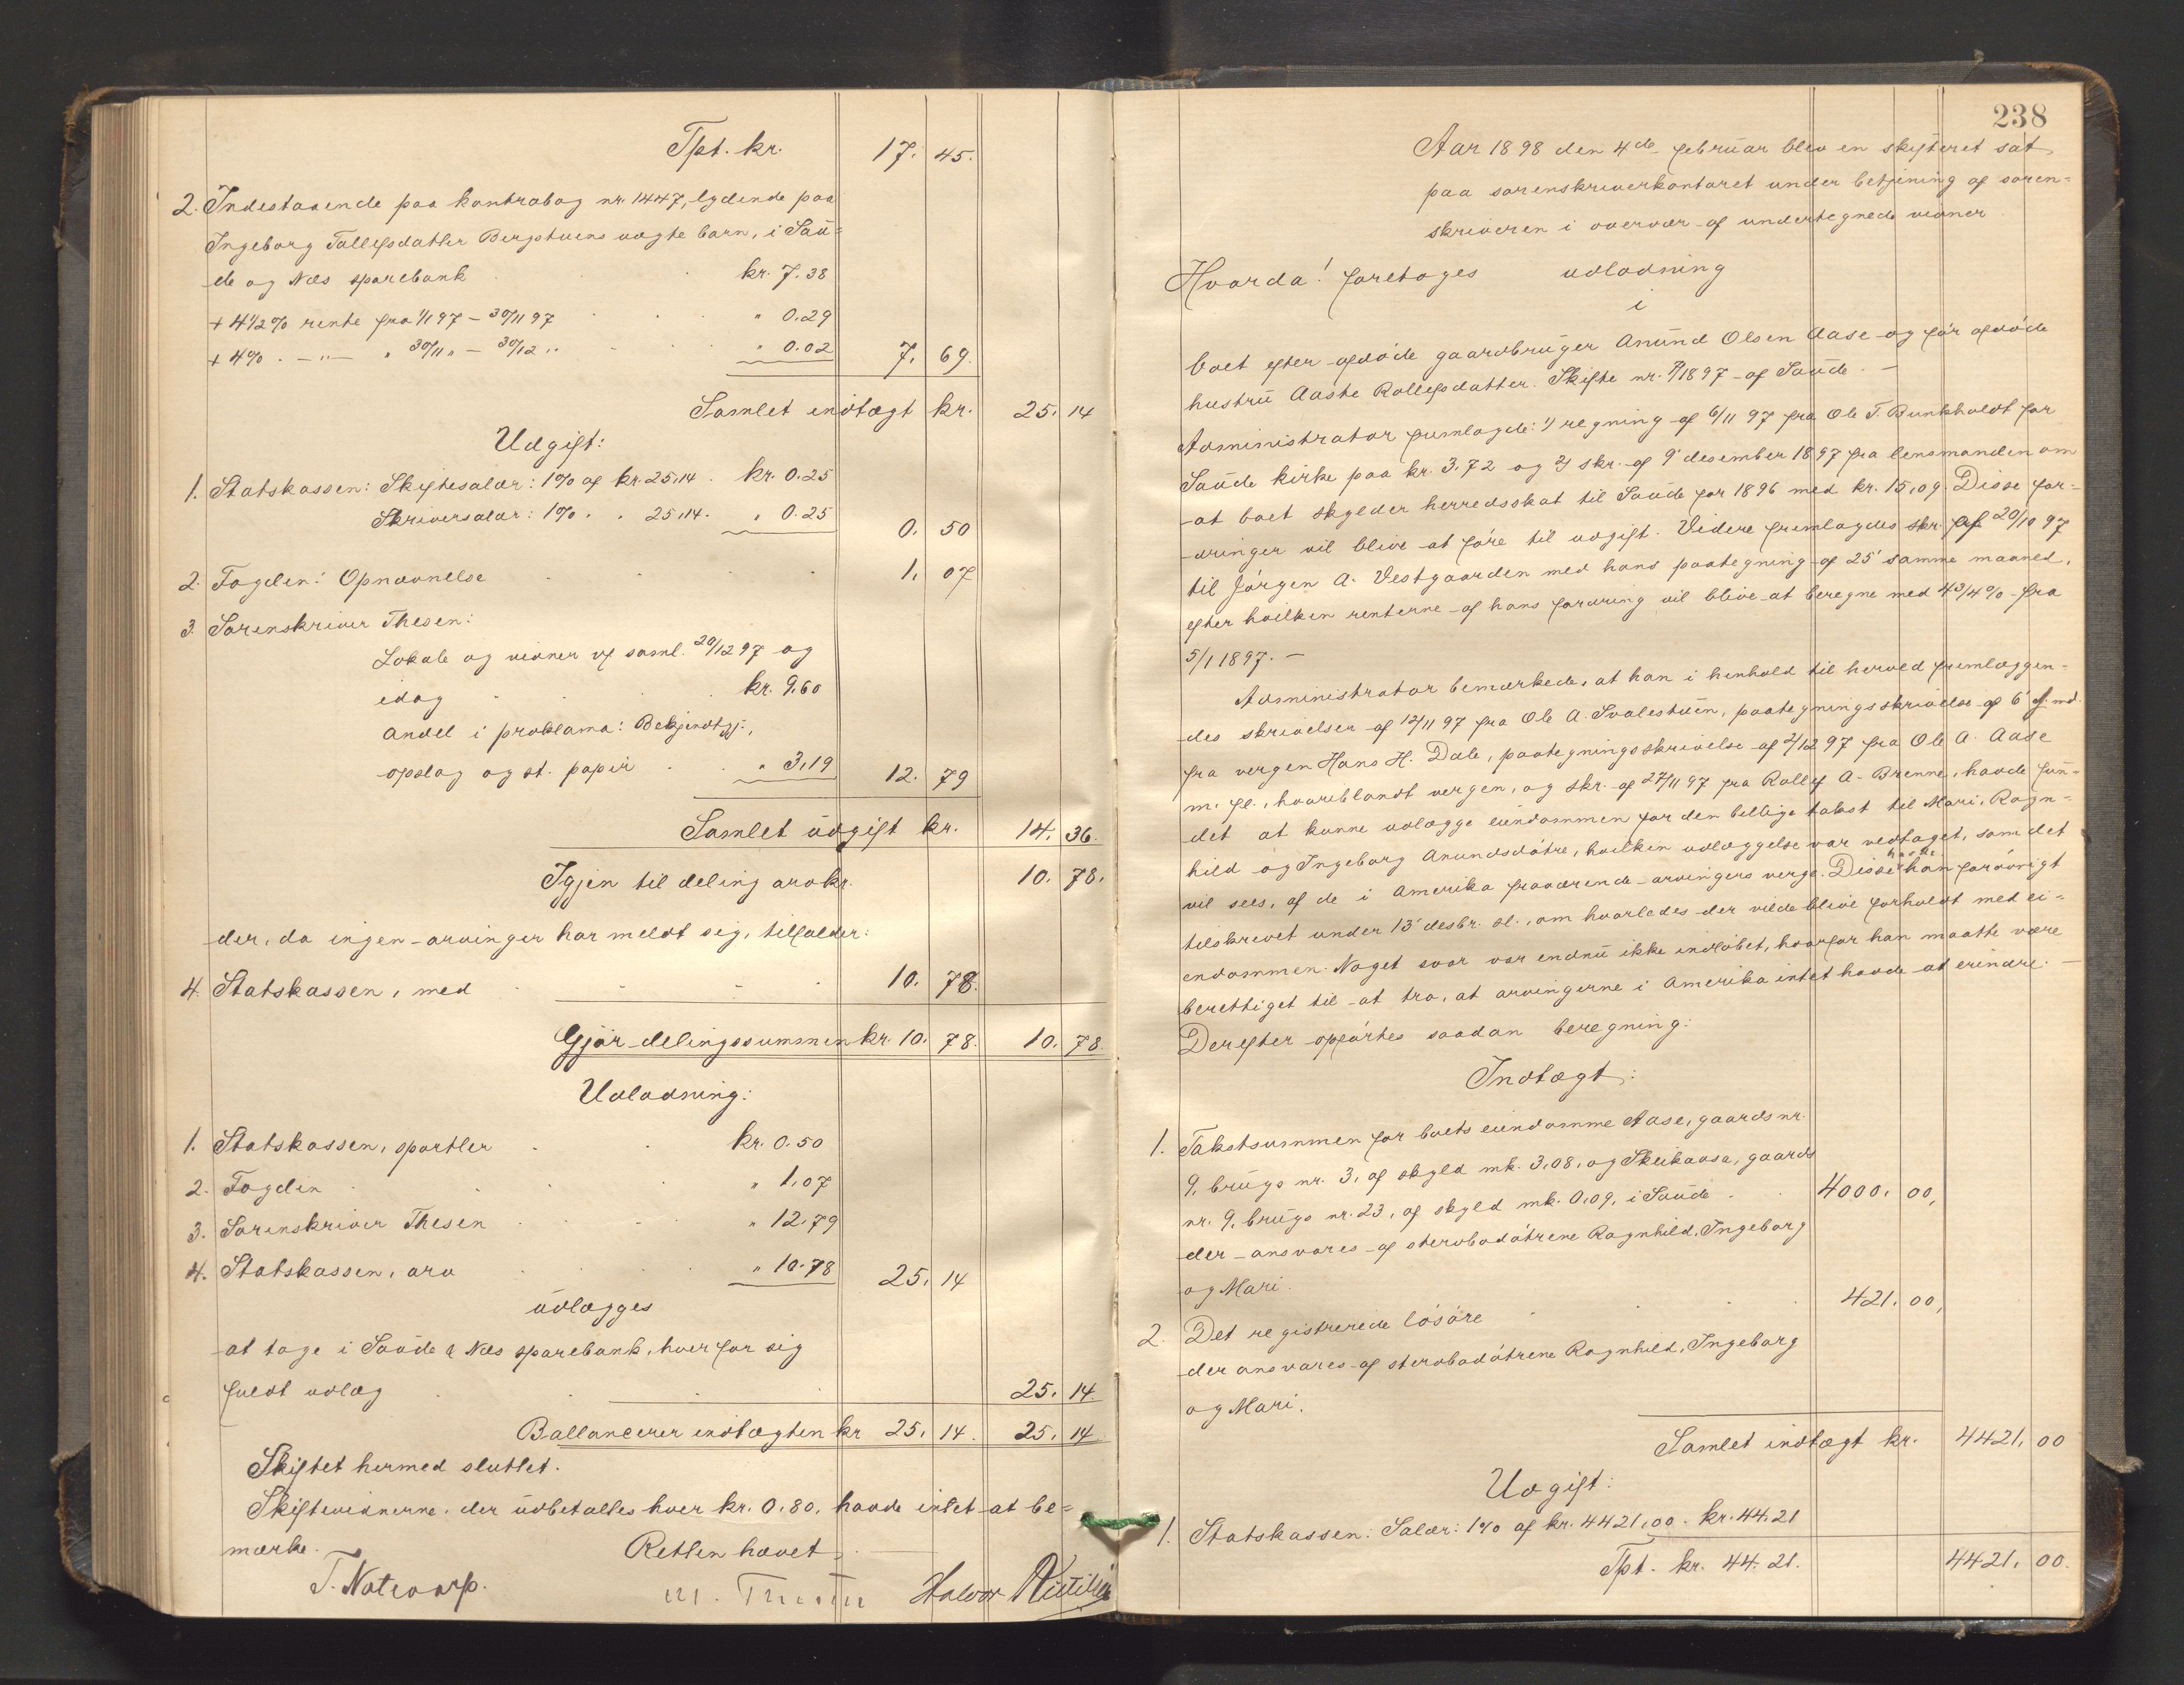 Tpt. kr. 17. 45.
2. Indestaaende paa kontrabog nr. 1447, lydende paa
Ingeborg Tollefsdatter Bergstuens uægte barn, i Sau=
de og Næs sparebank . . kr. 7.38
+ 4 1/2 % rente fra 1/1 97 - 30/11 97 . . . " 0.29
+ 4 % . -"- " 30/11 " - 30/12 " . . . " 0.02 7. 69.
Samlet indtægt kr. 25. 14
Udgift:
1. Statskassen: Skiftesalær: 1% af kr. 25,14 . kr. 0.25
Skriversalær: 1% . . 25,14. " 0.25 0. 50
2. Fogden: Opnævnelse . . . . 1. 07
3. Sorenskriver Thesen:
Lokale og vidner vf saml. 20/12 97 og
idag . . . . kr. 9,60
Andel i proklama: Bekjendtgj.,
opslag og st. papir . . " 3,19 12. 79
Samlet udgift kr. 14. 36.
Igjen til deling arv kr. 10. 78.
der, da ingen arvinger har meldt sig, tilfalder:
4. Statskassen, med . - - - 10. 78.
Gjør delingssummen kr. 10. 78. 10. 78.
Udlodning:
1. Statskassen, sportler . . kr. 0.50
2. Fogden . . . . " 1,07
3. Sorenskriver Thesen . . . " 12.79
4. Statskassen, arv . . . . " 10.78 25. 14
udlægges
at tage i Saude & Næs sparebank, hver for sig
fuldt udlæg . . . 25. 14.
Ballancerer indtægten kr 25. 14. 25. 14
Skiftet hermed sluttet.
Skiftevidnerne, der udbetaltes hver kr. 0.80, havde intet at be=
mærke. Retten hævet. —
T. Notvarp. Halvor
238
Aar 1898 den 4de februar blev en skifteret sat
paa sorenskriverkontoret under betjening af soren=
skriveren i overvær af undertegnede vidner
Hvorda! foretoges udlodning
i
boet efter afdøde gaardbruger Anund Olsen Aase og før afdøde
hustru Aaste Rollefsdatter. Skifte nr. 7/1897 af Saude. —
Administrator fremlagde: 1) regning af 6/11 97 fra Ole T. Bunkholdt for
Saude kirke paa kr. 3.72 og 2) skr. af 9' desember 1897 fra lensmanden om
at boet skylder herredsskat til Saude for 1896 med kr. 15,09. Disse for=
dringer vil blive at føre til udgift. Videre fremlagdes skr. af 20/10 97
til Jørgen A. Vestgaarden med hans paategning af 25' samme maaned,
efter hvilken renterne af hans fordring vil blive at beregne med 4 3/4 % fra
5/1 1897. —
Administrator bemærkede, at han i henhold til herved fremlæggen=
des skrivelser af 12/11 97 fra Ole A. Svalestuen, paategningsskrivelse af 6' s. md.
fra vergen Hans H. Dale, paategningsskrivelse af 2/12 97 fra Ole A. Aase
m. fl., hvoriblandt vergen, og skr. af 27/11 97 fra Rollef A. Brenne, havde fun=
det at kunne udlægge eiendommen for den billige takst til Mari, Ragn=
hild og Ingeborg Anundsdøtre, hvilken udlæggelse var vedtaget, som det
vil sees, af de i Amerika fraværende arvingers verge. Disse havde han forøvrigt
tilskrevet under 13' desbr. sl., om hvorledes der vilde blive forholdt med ei=
endommen. Noget svar var endnu ikke indløbet, hvorfor han maatte være
berettiget til at tro, at arvingerne i Amerika intet havde at erindre. —
Derefter opførtes saadan beregning:
Indtægt:
1. Takstsummen for boets eiendomme Aase, gaards nr.
9, brugs nr. 3, af skyld mk. 3,08, og Skeikaasa, gaards
nr. 9, brugs nr. 23, af skyld mk. 0,09, i Saude . . 4000. 00,
der ansvares af stervbodøtrene Ragnhild, Ingeborg
og Mari.
2. Det registrerede løsøre . . . . 421. 00,
der ansvares af stervbodøtrene Ragnhild, Ingeborg
og Mari.
Samlet indtægt kr. 4421, 00
Udgift:
1. Statskassen: Salær: 1% af kr. 4421,00. kr. 44.21
Tpt. kr. 44.21. 4421, 00.